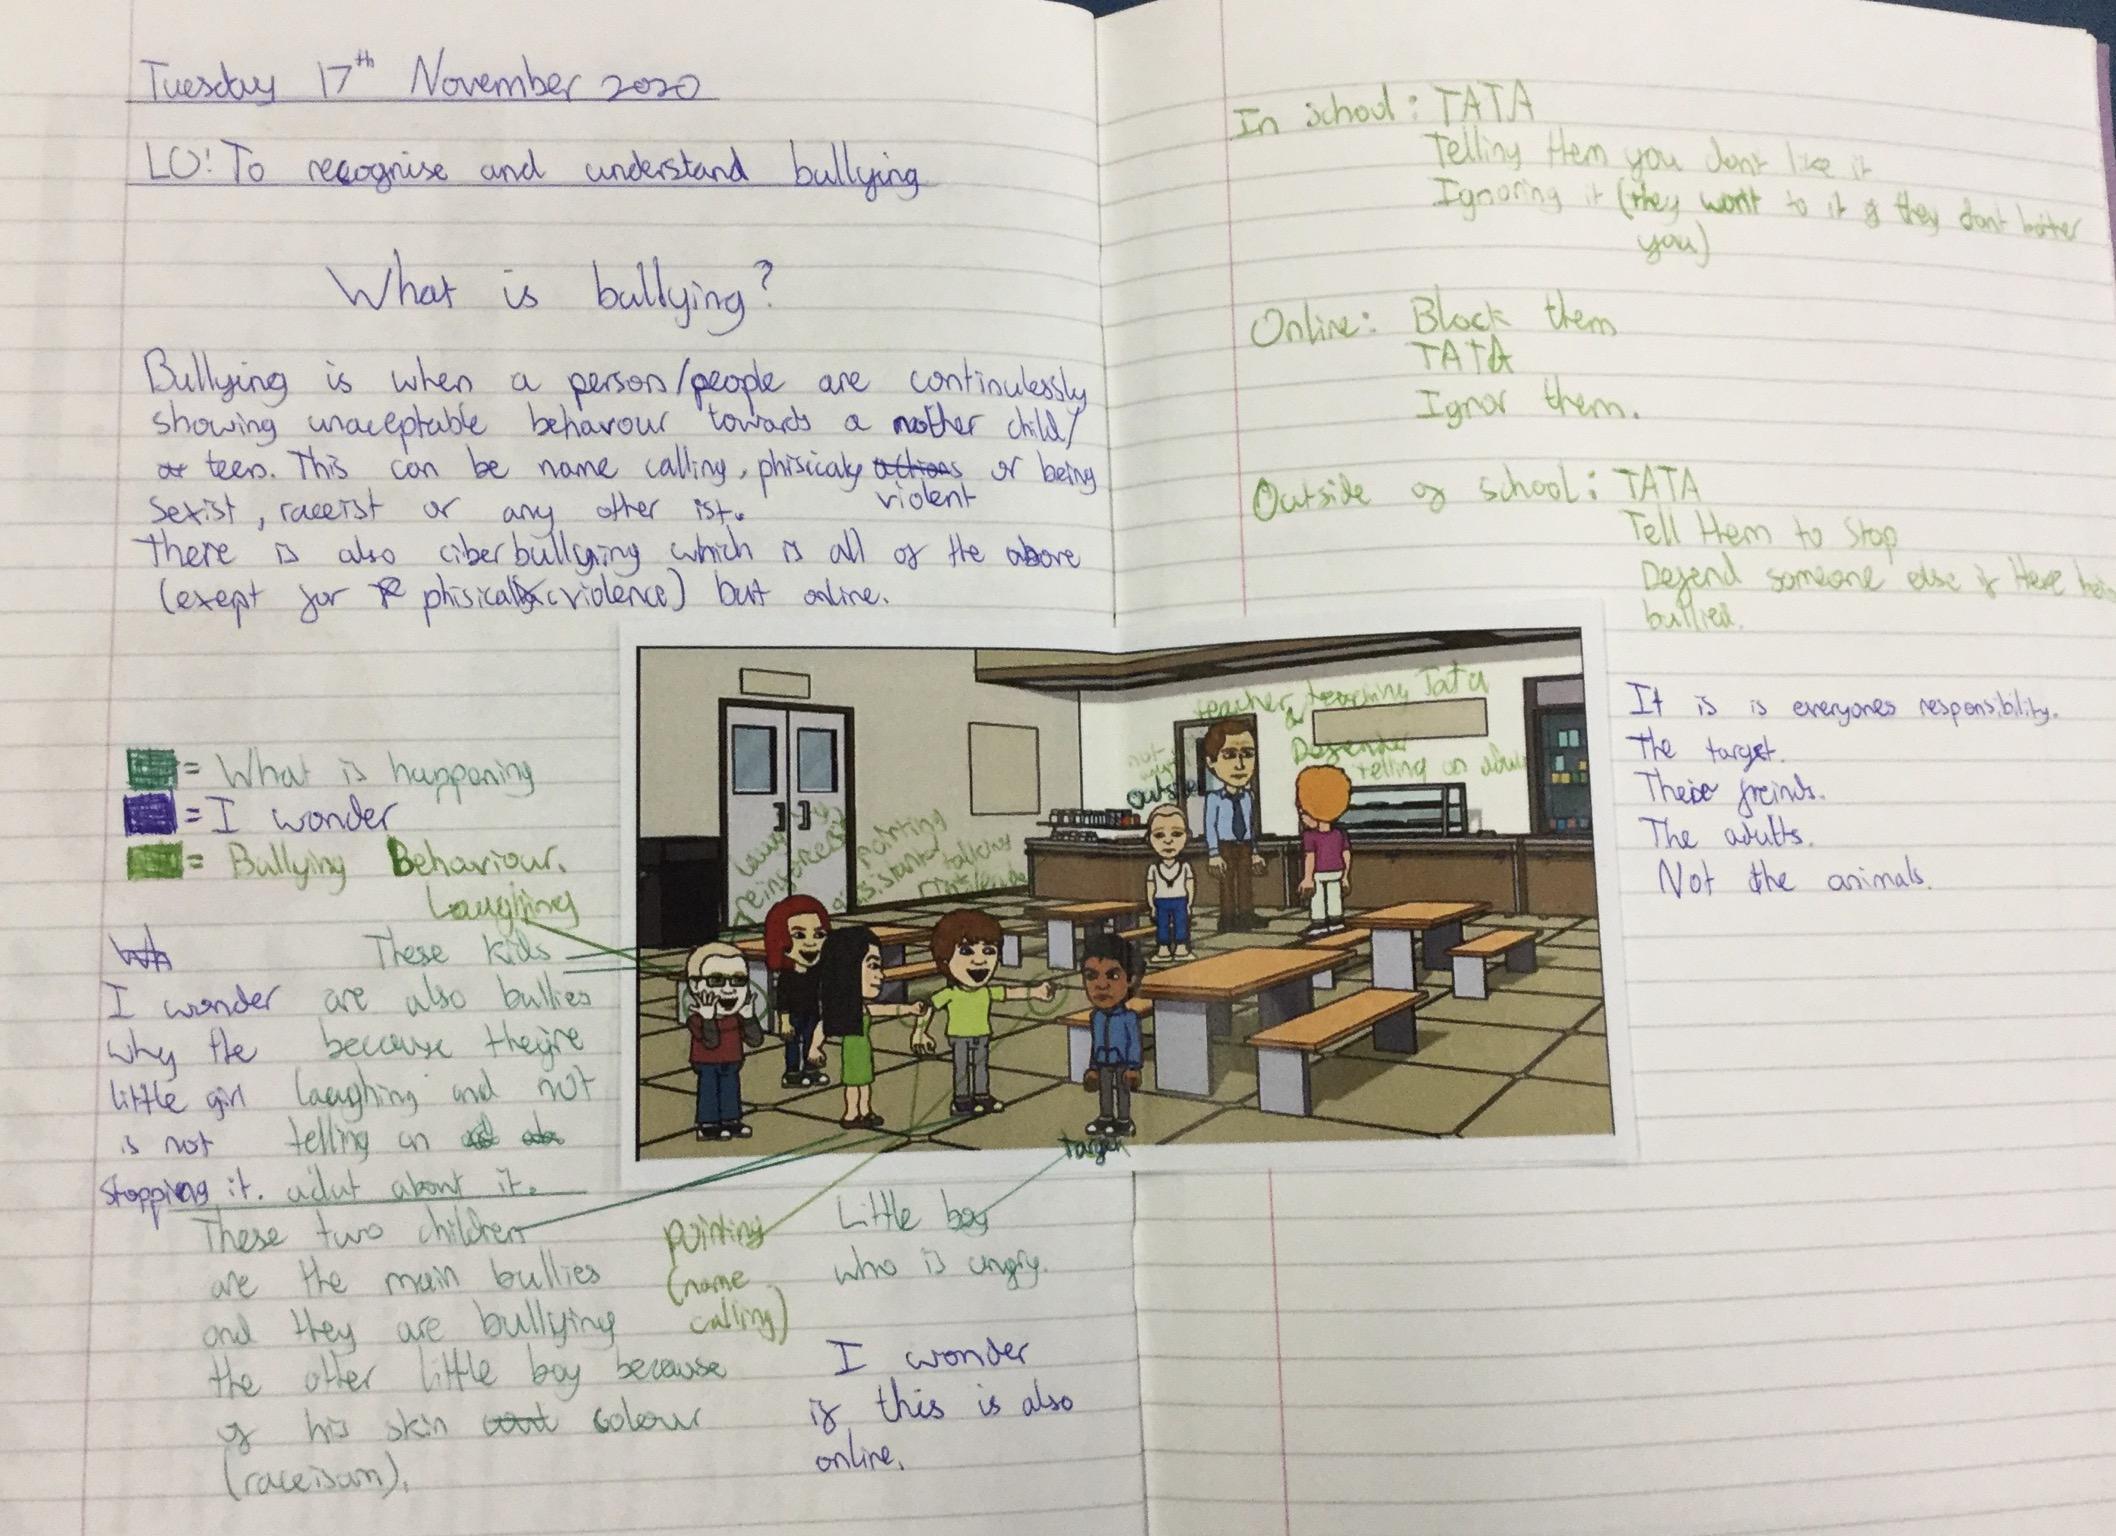 Tuesday 17th November 2020
LO: To recognise and understand bullying
What is bullying?
Bullying is when a person/people are continulessly
showing unaceptable behavour towards a nother child/
or teen. This can be name calling, phisicaly actions or being
violent
sexist, raceist or any other ist.
There is also ciberbullying which is all of the above
(exept for phisical violence) but online.
= What is happoning
= I wonder
= Bullying Behaviour.
Laughing
Wh
These kids
are also bullies
because theyre
laughing and not
telling an
adut about it.
I wonder
why the
little girl
is not
stopping it.
These two children
are the main bullies
and they are bullying
the other little boy because
of his skin colour
(raceisam).
pointing
(name
calling)
Little boy
who is angry.
I wonder
if this is also
online.
laughing
reinforcer
pointing
assistant
talking
ringleader
not
outsider
teacher teaching Tata
Defender
telling an adult
target
In school: TATA
Telling them you dont like it
Ignoring it (they wont to it if they dont bother
you)
Online: Block them
TATA
Ignor them.
Outside of school: TATA
Tell them to stop
Defend someone else if there being
bullied.
It is is everyones responsibility.
The target.
Their freinds.
The adults.
Not the animals.